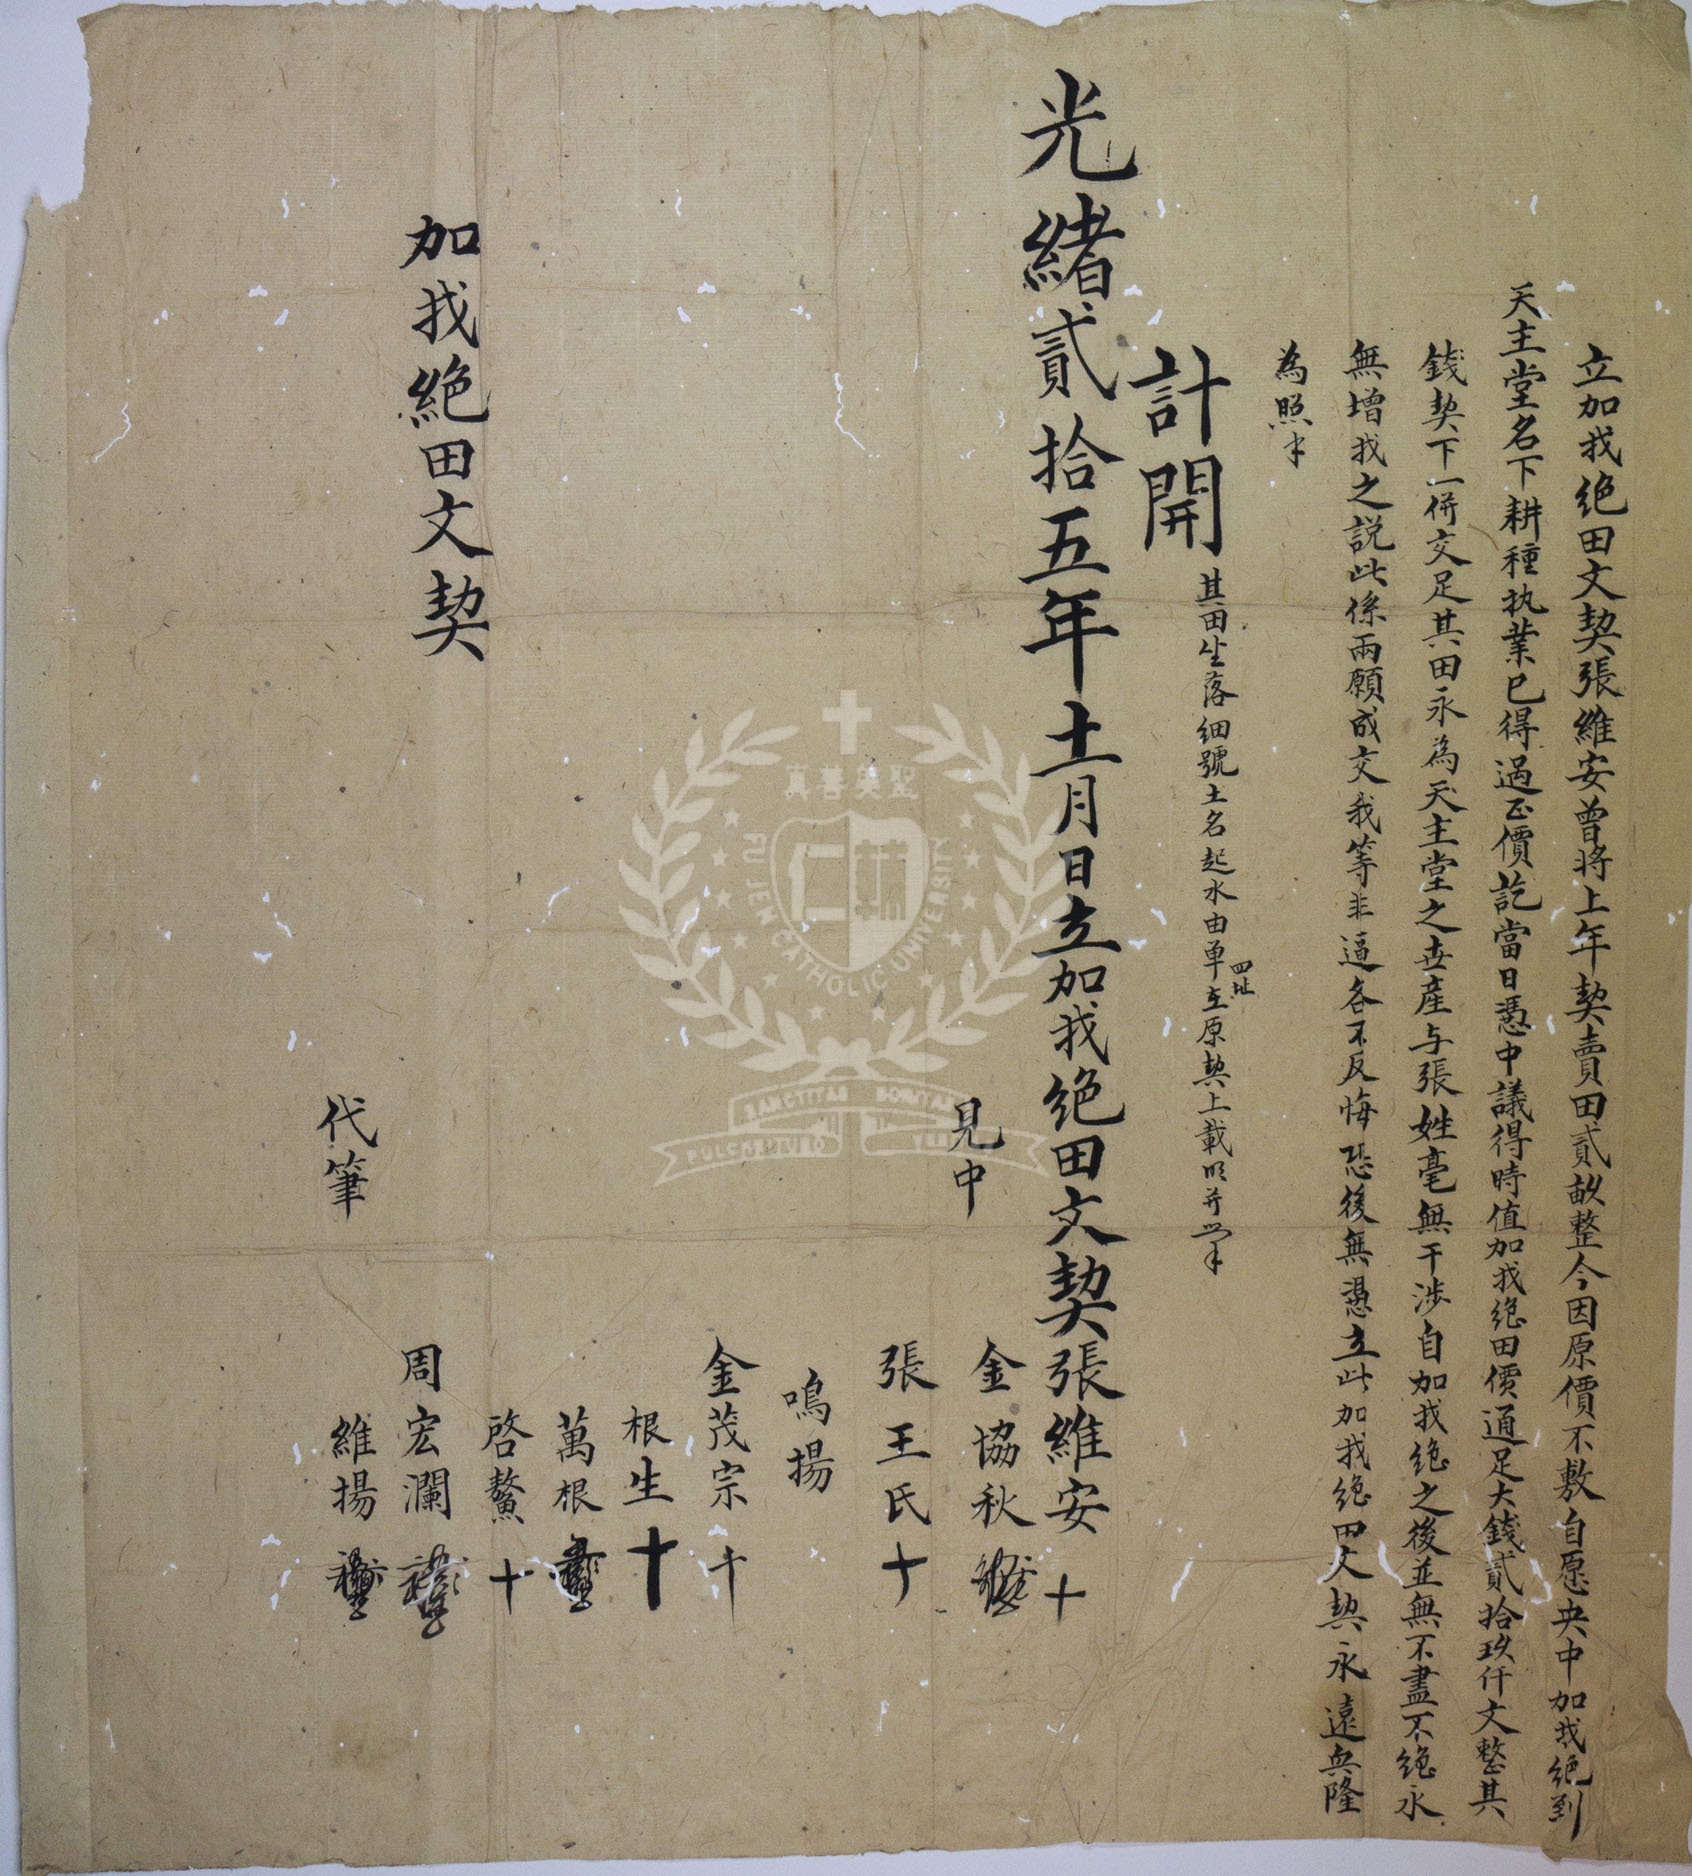 立加找絶田文契張維安曾將上年契賣田貳畝整今因原價不敷自愿央中加找絶到
天主堂名下耕種执業已得過正價訖當日憑中議得時值加找绝田價通足大錢貳拾玖仟文整其
錢契下一併交足其田永為天主堂之世產与張姓毫無干涉自加找绝之後並無不盡不绝永
無增找之説此係兩願成交我等非逼各不反悔恐後無憑立此加找绝田文契永遠興隆
為照
計開
其田坐落细號土名起水由单四址在原契上載明并
光緒貳拾五年十一月日立加找绝田文契張維安十
見中
金協秋
張王氏十
鳴揚
金茂宗十
根生十
萬根
啓鰲十
周宏瀾
代筆
維揚
加找絕田文契
真善美聖
FU JEN CATHOLIC UNIVERSITY
SANCTITAS BONITAS
PULCHRITUDO VERITAS